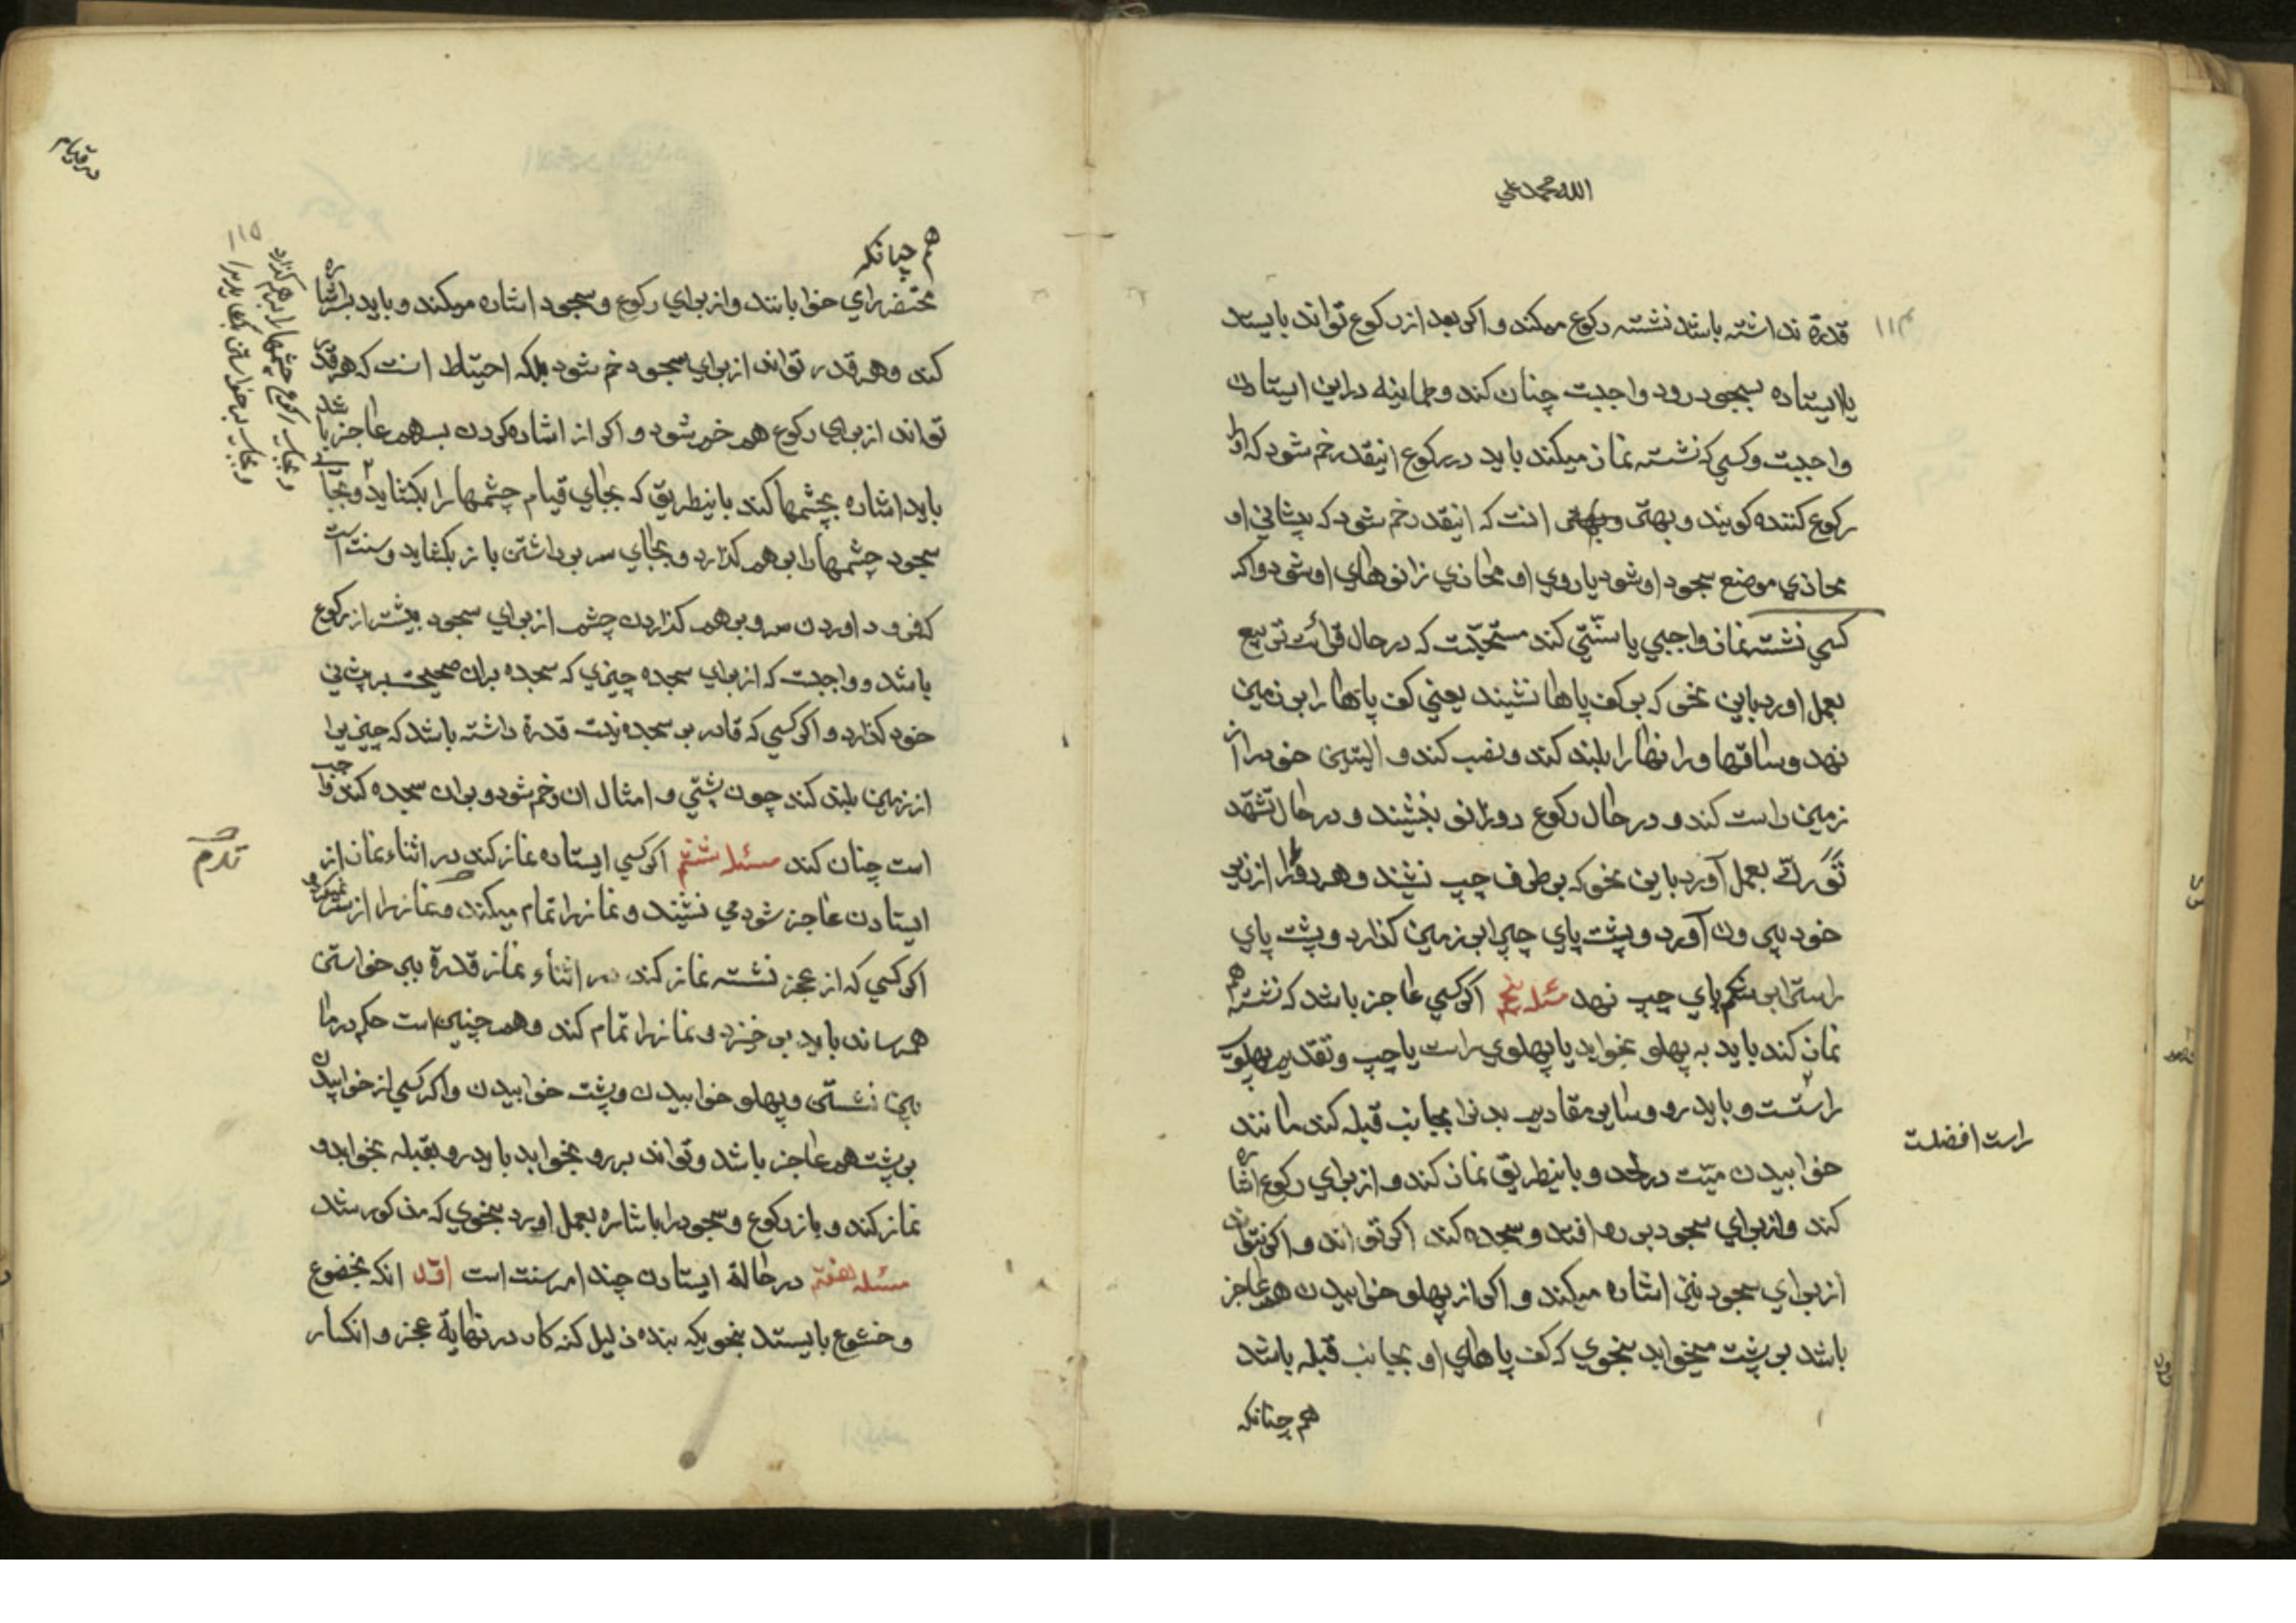 الله محمد علي
۱۱۴
قدرة نداشته باشد نشسته ركوع ميكند و اكر بعد از ركوع تواند بايستد
يا ايستاده بسجود رود واجبست چنان كند و طمانينه در اين ايستادن
واجبست و كسي كه نشسته نماز ميكند بايد در ركوع اينقدر خم شود كه او را
ركوع كننده كويند و بهتر انست كه اينقدر خم شود كه پيشاني او
محاذي موضع سجود او شود يا روي او محاذي زانوهاي او شود و اكر
كسي نشسته نماز واجبي يا سنّتي كند مستحبّست كه در حال قرائت تربيع
بعمل اورد باين نحو كه بر كف پاها نشيند يعني كف پاها را بر زمين
نهد و ساقها و رانها را بلند كند و نصب كند و اليتين خود را از
زمين راست كند و در حال ركوع دو زانو بنشيند و در حال تشهّد
تَوَرُّك بعمل آورد باين نحو كه بر طرف چپ نشيند و هر دو پا را از زير
خود بيرون آورد و پشت پاي چپ را بر زمين كذارد و پشت پاي
راست را بر شكم پاي چپ نهد مسئله پنجم اكر كسي عاجز باشد كه نشسته هم
نماز كند بايد به پهلو بخوابد يا پهلوي راست يا چپ و تقديم پهلوي
راستست و بايد رو و ساير مقاديم بدنرا بجانب قبله كند مانند
راست افضلست
خوابيدن ميّت در لحد و باينطريق نماز كند و از براي ركوع اشاره
كند و از براي سجود بر رو افتد و سجده كند اكر تواند و اكر نتواند
از براي سجود نيز اشاره ميكند و اكر از پهلو خوابيدن هم عاجز
باشد بر پشت ميخوابد بنحوي كه كف پاهاي او بجانب قبله باشد
هم چنانكه
در قيام
۱۱۵
هم چنانكه
محتضر را مي خوابانند و از براي ركوع و سجود اشاره ميكند و بايد بسر اشاره
كند و هر قدر تواند از براي سجود خم شود بلكه احتياط انست كه هر قدر
تواند از براي ركوع هم خم شود و اكر از اشاره كردن بسر هم عاجز باشد
بايد اشاره بچشمها كند باينطريق كه بجاي قيام چشمها را بكشايد و بجاي
و بجاي ركوع چشمها را بر هم كذارد
و بجاي برخواستن بكشايد
سجود چشمها را بر هم كذارد و بجاي سر برداشتن باز بكشايد و سنت است
كه فرود اوردن سر و بر هم كذاردن چشم از براي سجود بيشتر از ركوع
باشد و واجبست كه از براي سجده چيزي كه سجده بران صحيحست بر پيشاني
خود كذارد و اكر كسي كه قادر بر سجده نيست قدرة داشته باشد كه چيزيرا
از زمين بلند كند چون پشتي و امثال ان و خم شود و بران سجده كند واجب
است چنان كند مسئله ششم اكر كسي ايستاده نماز كند در اثناء نماز از
ايستادن عاجز شود مي نشيند و نماز را تمام ميكند و نماز را از سر نميكيرد و
اكر كسي كه از عجز نشسته نماز كند در اثناء نماز قدرة بر خواستن
همرساند بايد بر خيزد و نماز را تمام كند و همچنين است حكم در ما
بين نشستن و پهلو خوابيدن و پشت خوابيدن و اكر كسي از خوابيدن
بر پشت هم عاجز باشد و تواند بر رو بخوابد بايد رو بقبله بخوابد و
نماز كند و باز ركوع و سجود را باشاره بعمل اورد بنحوي كه مذكور شد
مسئله هفتم در حالة ايستادن چند امر سنت است اوّل انكه بخضوع
و خشوع بايستد بنحويكه بنده ذليل كنه كار در نهاية عجز و انكسار